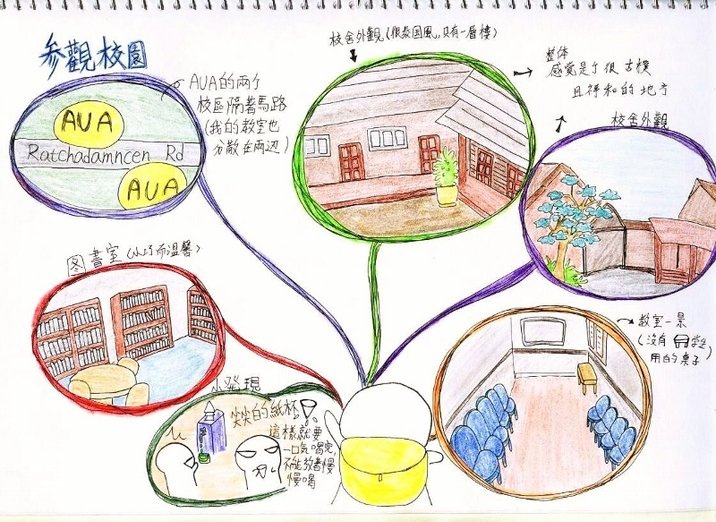 参觀校園
AUA的兩个
校區隔著馬路
(我的教室也
分散在兩边)
AUA
Ratchadamncen Rd
AUA
校舍外觀(很泰国風,只有一層樓)
整体
感覚是个很古樸
且祥和的地方
校舍外觀
图書室(小巧而溫馨)
教室一景
(沒有
用的桌子)
小發現
尖尖的紙杯
這樣就要
一口気喝完,
不能放著慢
慢喝